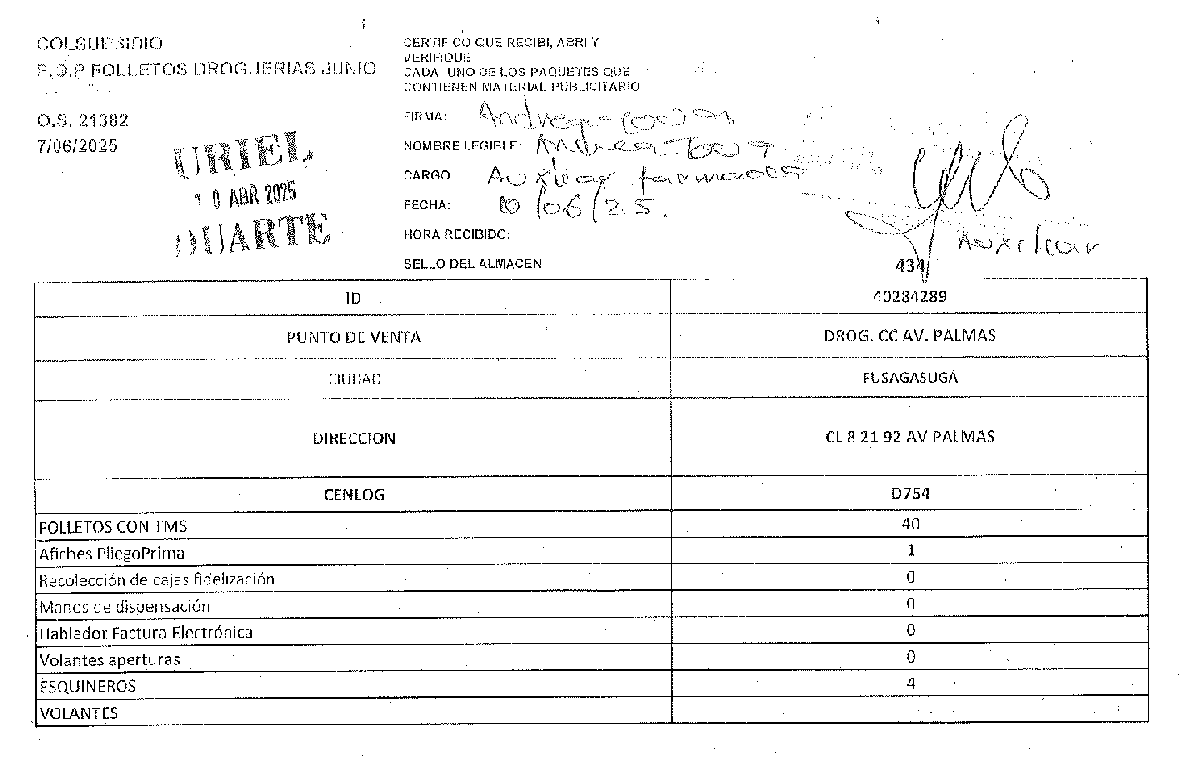 COLSUBSIDIO
P.O.P FOLLETOS DROGUERIAS JUNIO
O.S. 21382
7/06/2025
URIEL
10 ABR 2025
DUARTE
CERTIFICO QUE RECIBI, ABRI Y
VERIFIQUE
CADA UNO DE LOS PAQUETES QUE
CONTIENEN MATERIAL PUBLICITARIO
FIRMA: Andrea
NOMBRE LEGIBLE: Andrea
CARGO Auxiliar farmacia
FECHA: 10/06/25.
HORA RECIBIDO:
SELLO DEL ALMACEN
Auxiliar
434
ID 40284289
PUNTO DE VENTA DROG. CC AV. PALMAS
CIUDAD FUSAGASUGA
DIRECCION CL 8 21 92 AV PALMAS
CENLOG D754
FOLLETOS CON TMS 40
Afiches PliegoPrima 1
Recolección de cajas fidelización 0
Manos de dispensación 0
Hablador Factura Electrónica 0
Volantes aperturas 0
ESQUINEROS 4
VOLANTES